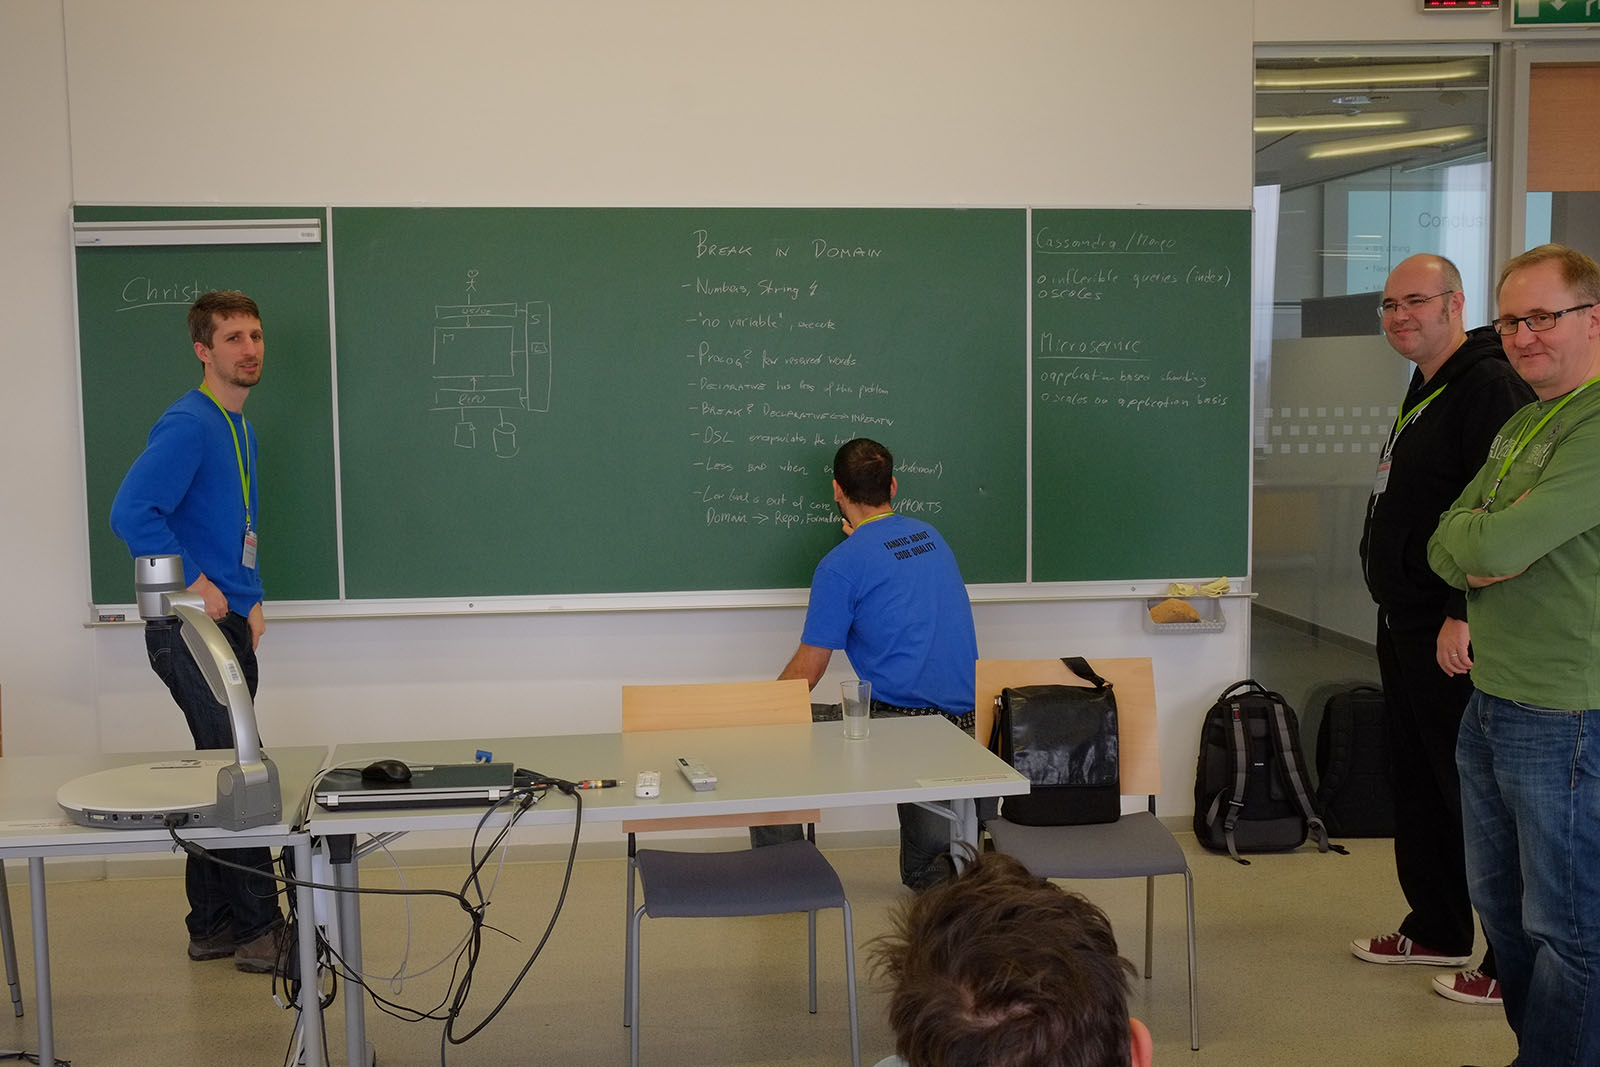 Christian
US/UI
M
S
REPO
BREAK IN DOMAIN
- Numbers, String
- "no variable", execute
- PROLOG? few reserved words
- DECLARATIVE has less of this problem
- BREAK? DECLARATIVE <-> IMPERATIV
- DSL encapsulates the
- LESS BAD when
- Low level is out of core SUPPORTS
Domain -> Repo, Formatter
Cassandra / Mongo
o inflexible queries (index)
o scales
Microservice
o application based sharding
o scales on application basis
FANATIC ABOUT
CODE QUALITY
Conclusi